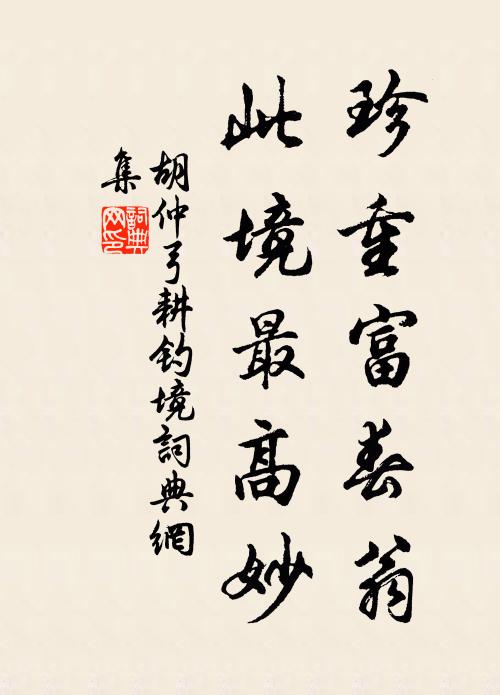 珍重富春翁
此境最高妙
胡仲弓耕釣境詞典網
集
詞典网印